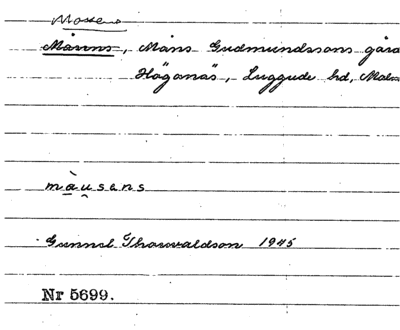 Mossens
Månns, Måns Gudmundssons gård
Höganäs, Luggude hd, Malm
måusens
Gunnel Thorvaldson 1945
Nr 5699.